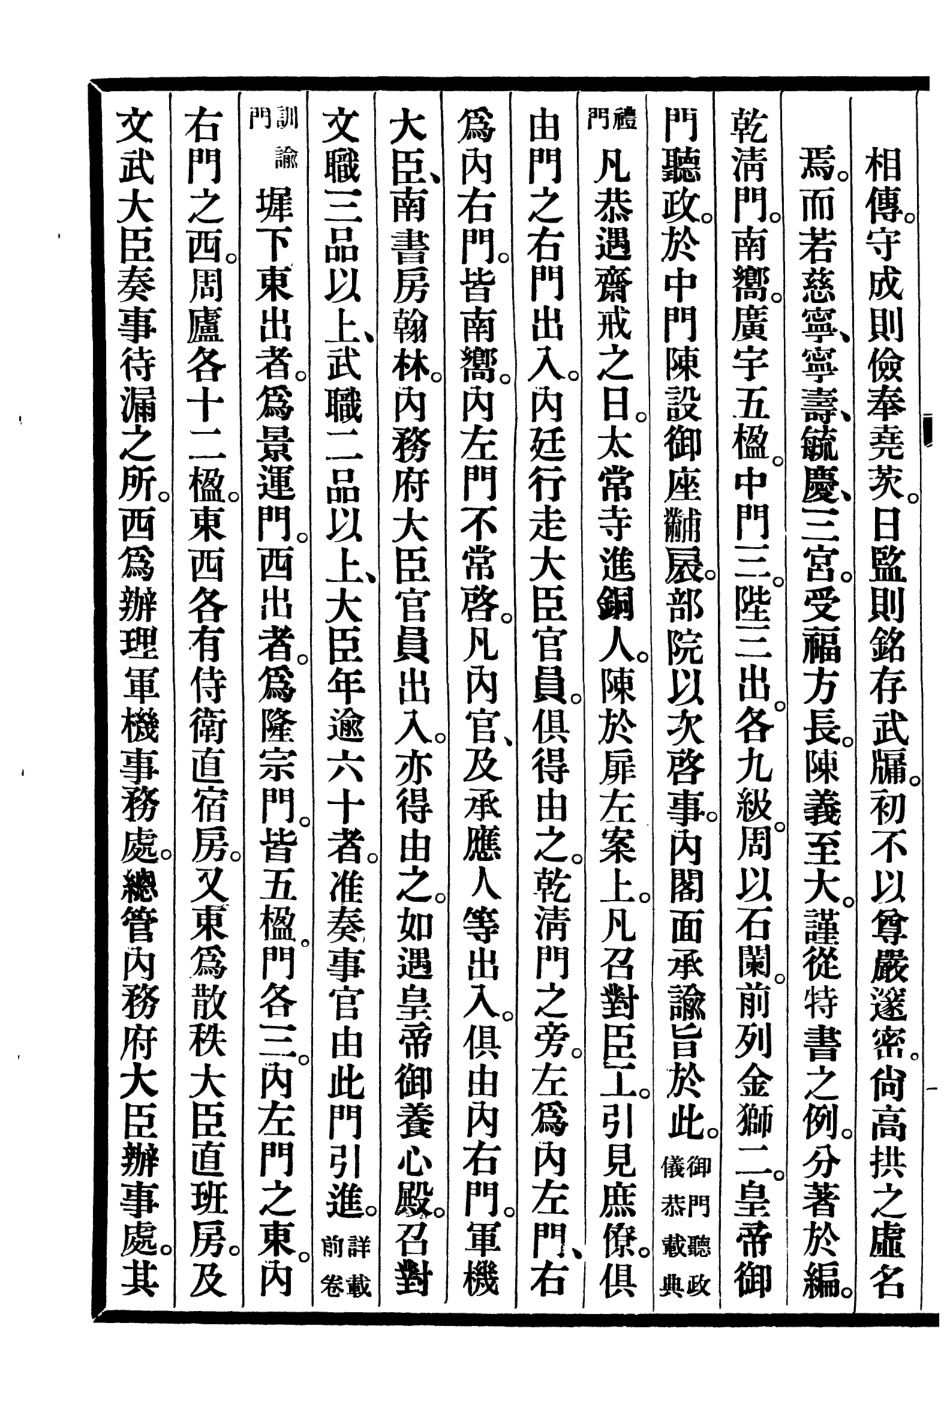 相傳。守成則儉奉堯茨。日監則銘存武牖。初不以尊嚴邃密。尙高拱之虛名
焉。而若慈寧、寧壽、毓慶、三宮。受福方長。陳義至大。謹從特書之例。分著於編。
乾淸門。南嚮。廣宇五楹。中門三。陛三出。各九級。周以石闌。前列金獅二。皇帝御
門聽政。於中門陳設御座黼扆。部院以次啓事。內閣面承諭旨於此。御門聽政儀恭載典
禮門凡恭遇齋戒之日。太常寺進銅人。陳於扉左案上。凡召對臣工。引見庶僚。俱
由門之右門出入。內廷行走大臣官員。俱得由之。乾淸門之旁。左爲內左門、右
爲內右門。皆南嚮。內左門不常啓。凡內官、及承應人等出入。俱由內右門。軍機
大臣、南書房翰林。內務府大臣官員出入。亦得由之。如遇皇帝御養心殿。召對
文職三品以上、武職二品以上、大臣年逾六十者。准奏事官由此門引進。詳載前卷
訓諭門墀下東出者。爲景運門。西出者。爲隆宗門。皆五楹。門各三。內左門之東。內
右門之西。周廬各十二楹。東西各有侍衛直宿房。又東爲散秩大臣直班房。及
文武大臣奏事待漏之所。西爲辦理軍機事務處。總管內務府大臣辦事處。其